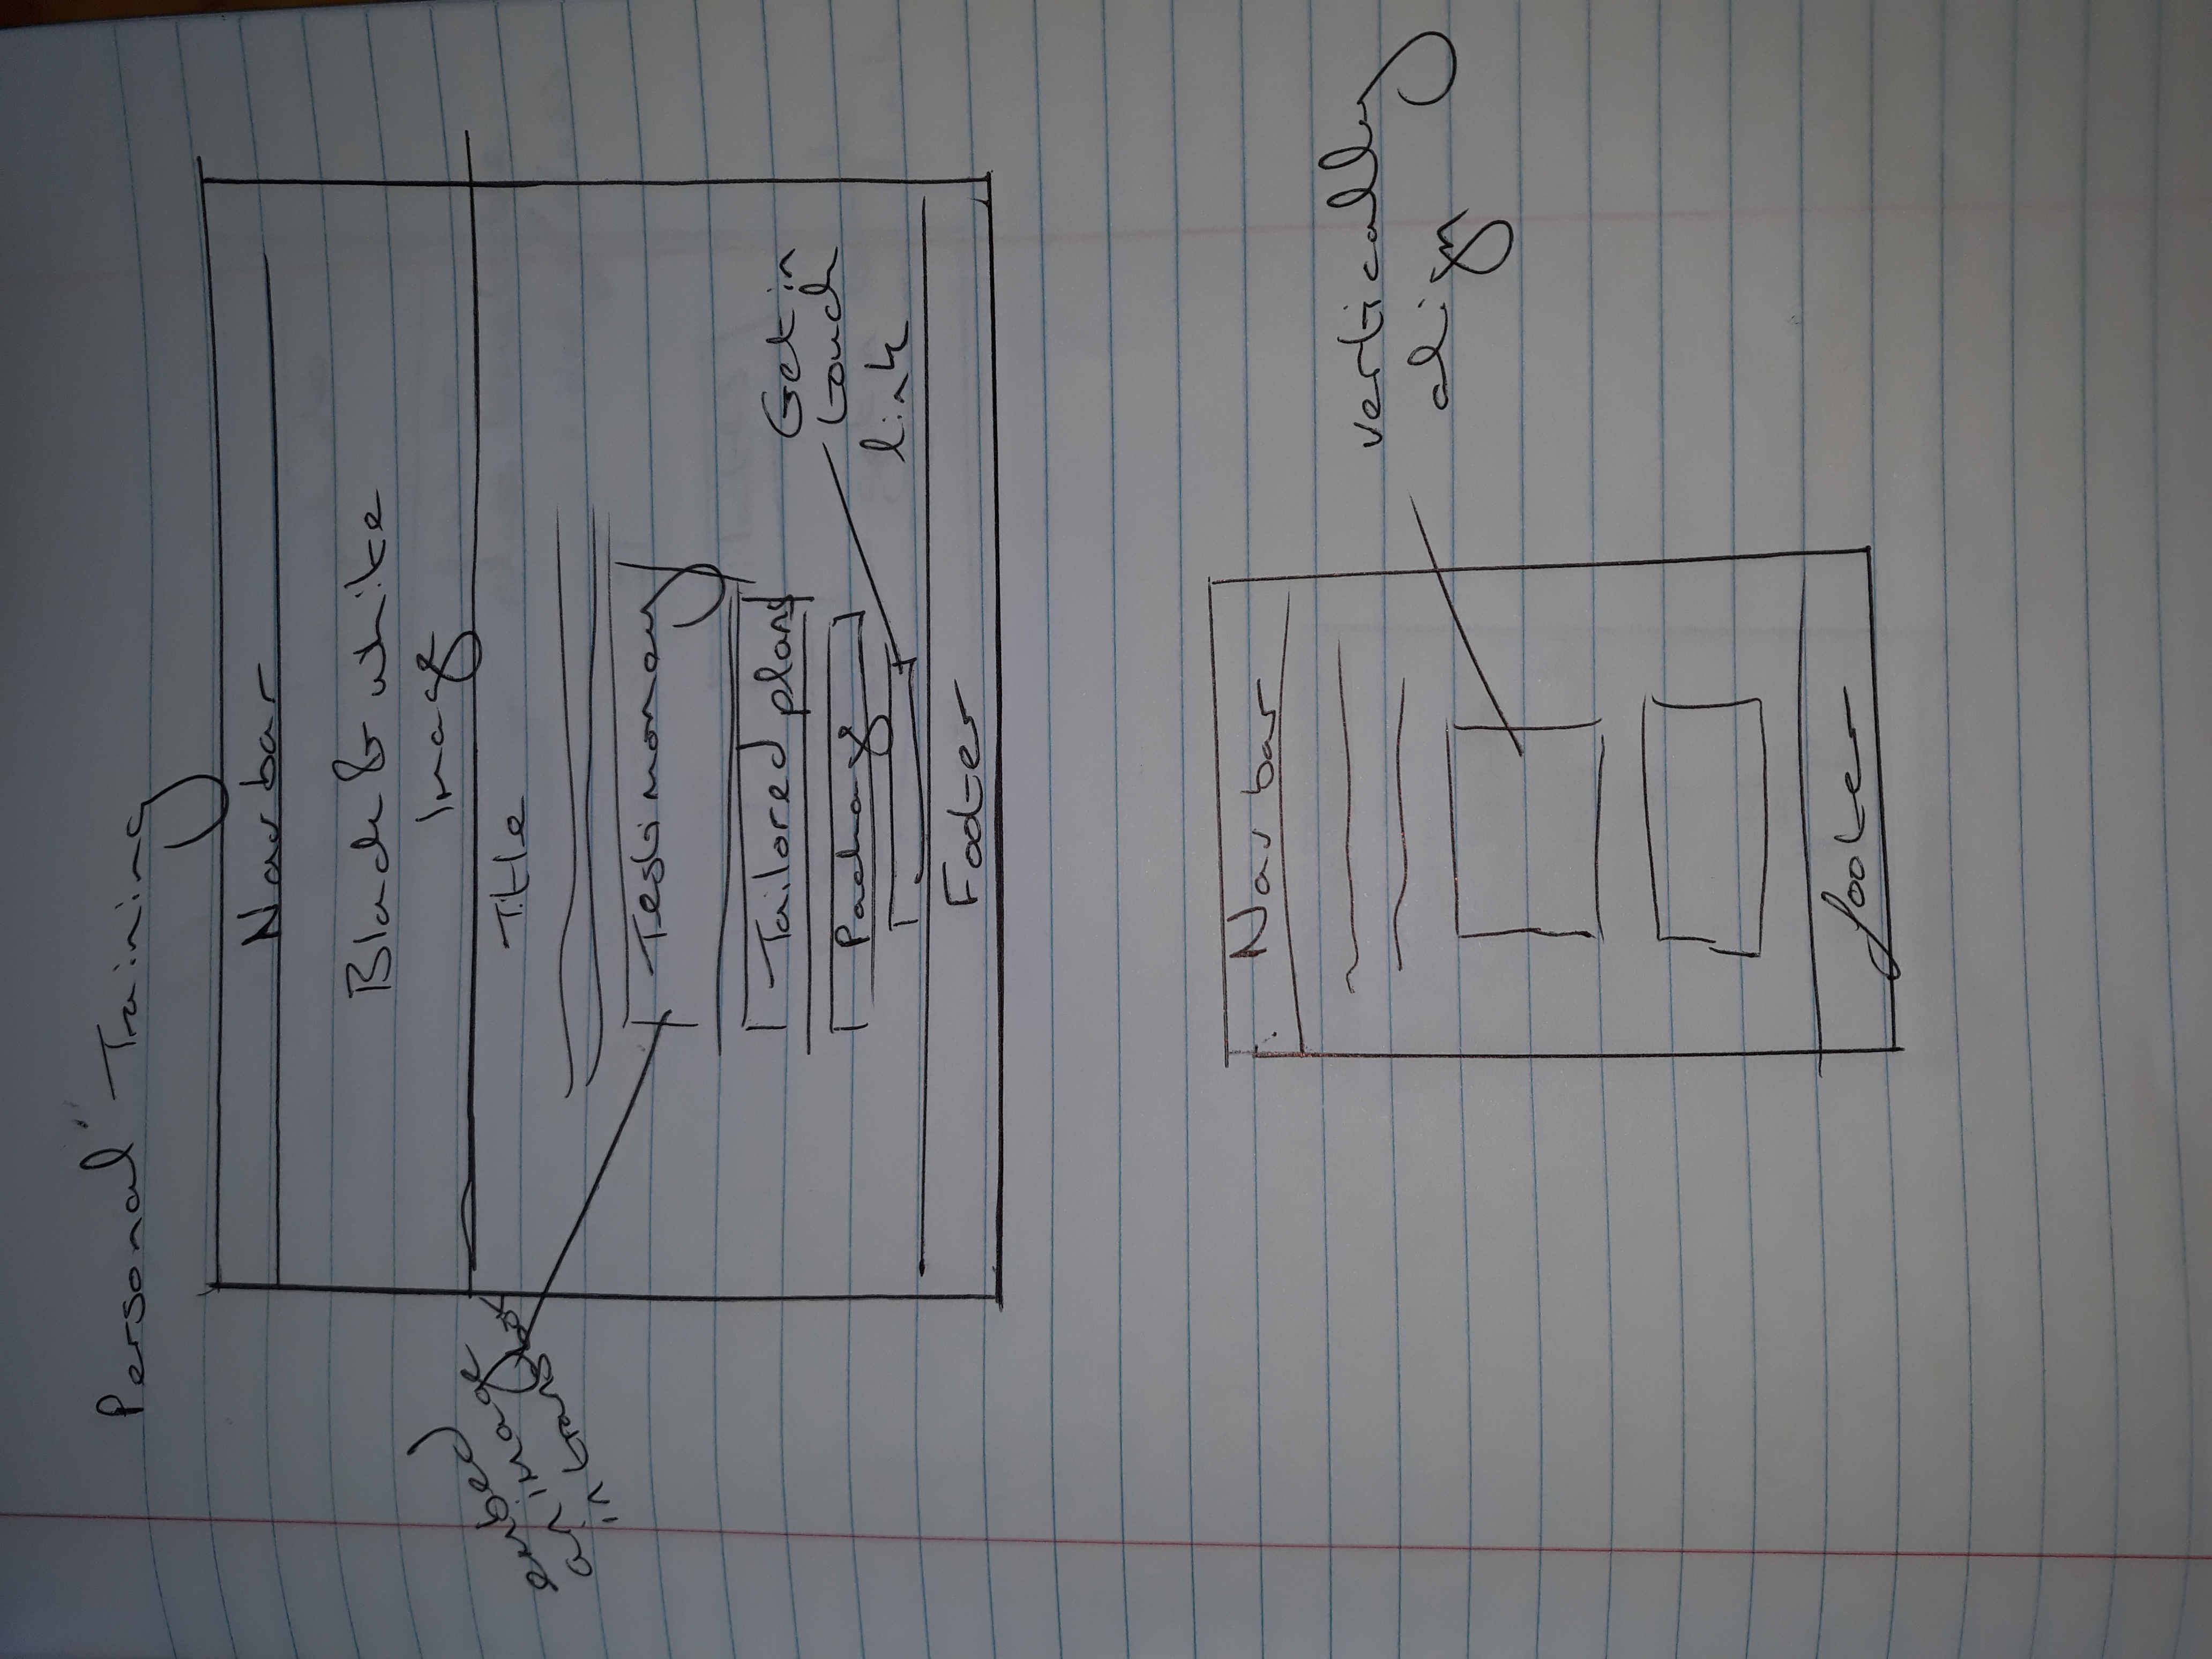 Personal Training
Nav bar
Black & white
Image
embed
an image
in
Title
Testimoney
Tailored plans
Package
Get in
touch
link
Footer
Nav bar
vertically
align
footer